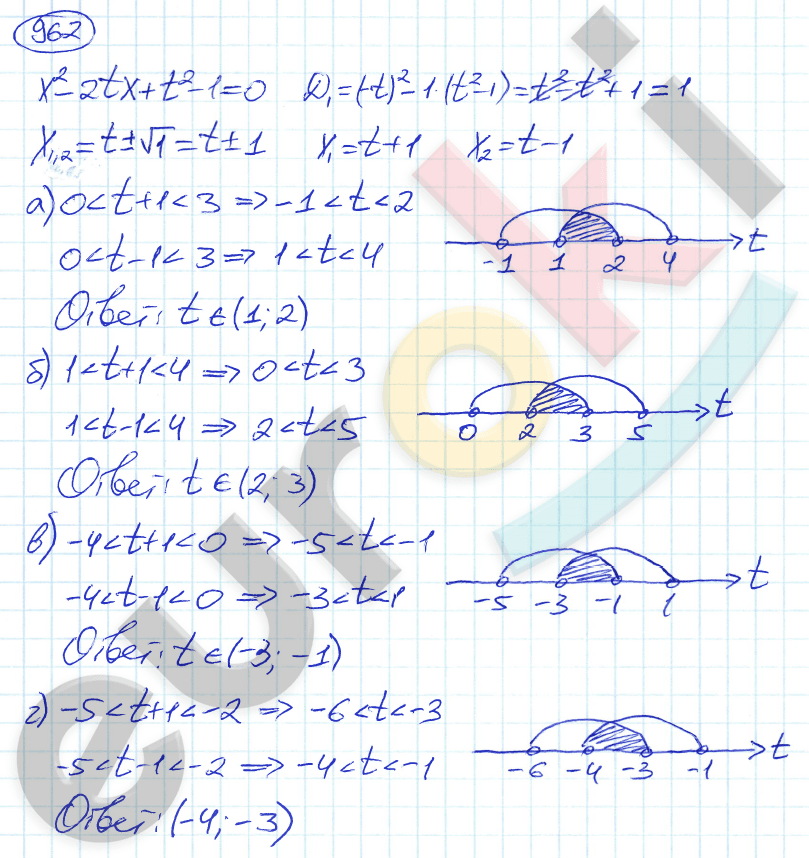 962
x²-2tx+t²-1=0 D₁=(-t)²-1·(t²-1)=t²-t²+1=1
x₁,₂=t±√1=t±1 x₁=t+1 x₂=t-1
а) 0<t+1<3 => -1<t<2
0<t-1<3 => 1<t<4
-1 1 2 4 t
Ответ: t∈(1; 2)
б) 1<t+1<4 => 0<t<3
1<t-1<4 => 2<t<5
0 2 3 5 t
Ответ: t∈(2; 3)
в) -4<t+1<0 => -5<t<-1
-4<t-1<0 => -3<t<1
-5 -3 -1 1 t
Ответ: t∈(-3; -1)
г) -5<t+1<-2 => -6<t<-3
-5<t-1<-2 => -4<t<-1
-6 -4 -3 -1 t
Ответ: (-4; -3)
euroki